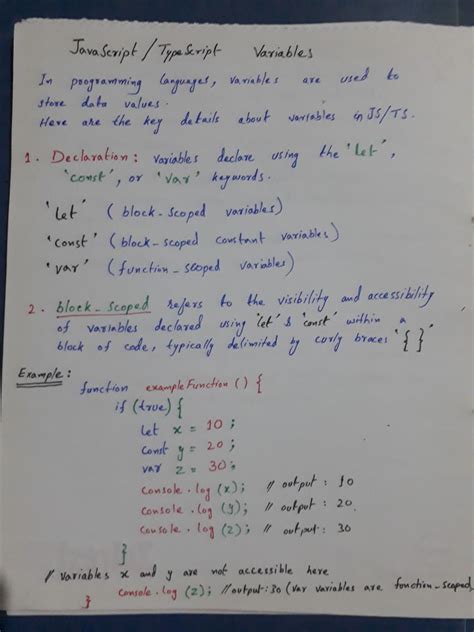 JavaScript / TypeScript Variables
In programming languages, variables are used to
store data values.
Here are the key details about variables in JS/TS.
1. Declaration: variables declare using the 'let',
'const', or 'var' keywords.
'let' (block-scoped variables)
'const' (block-scoped constant variables)
'var' (function-scoped variables)
2. block-scoped refers to the visibility and accessibility
of variables declared using 'let' & 'const' within a
block of code, typically delimited by curly braces '{ }'
Example:
function exampleFunction () {
if (true) {
let x = 10;
const y = 20;
var z = 30;
console.log (x); // output: 10
console.log (y); // output: 20
console.log (z); // output: 30
}
// variables x and y are not accessible here
console.log (z); // output:30 (var variables are fonction-scoped
}